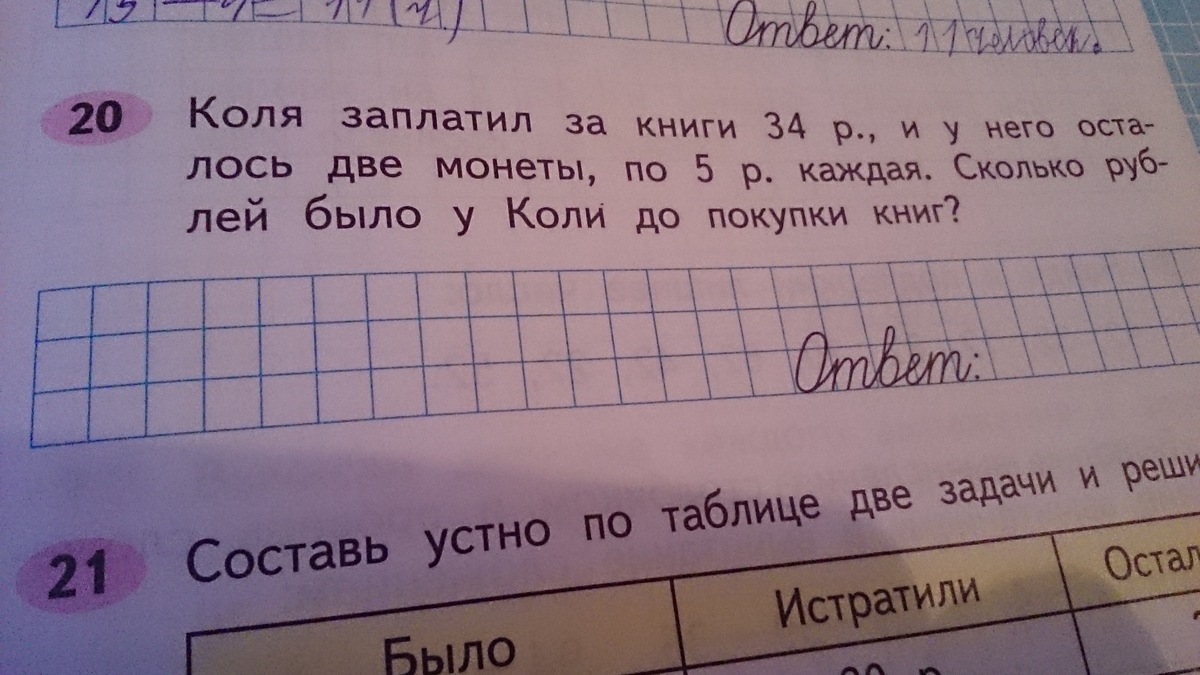 Ответ: 11 человек.
20 Коля заплатил за книги 34 р., и у него оста-
лось две монеты, по 5 р. каждая. Сколько руб-
лей было у Коли до покупки книг?
Ответ:
21 Составь устно по таблице две задачи и реши
Было Истратили Остал